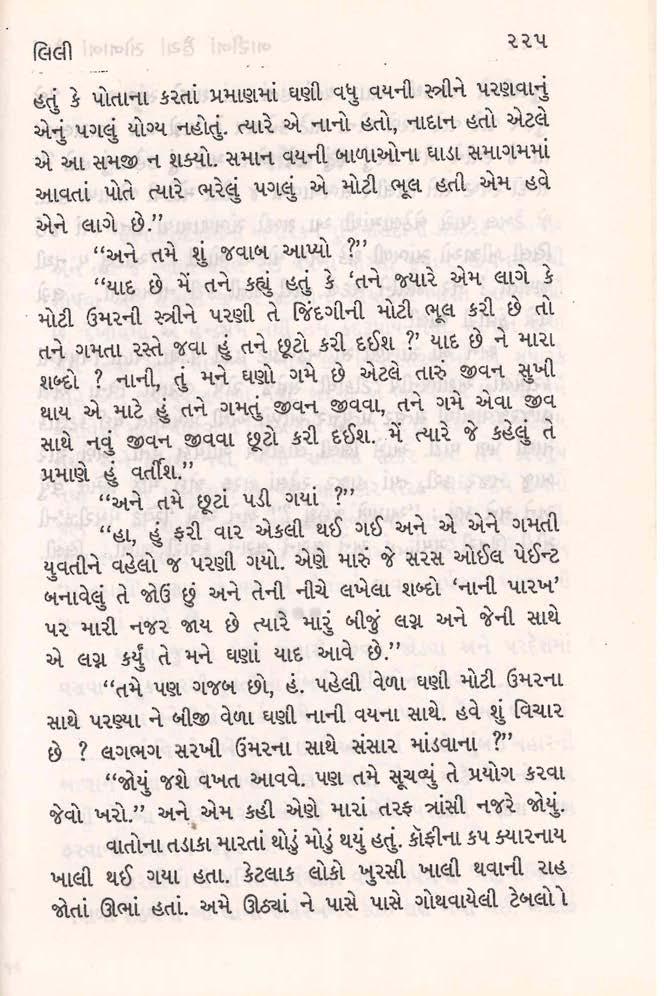 લિલી
૨૨૫
હતું કે પોતાના કરતાં પ્રમાણમાં ઘણી વધુ વયની સ્ત્રીને પરણવાનું
એનું પગલું યોગ્ય નહોતું. ત્યારે એ નાનો હતો, નાદાન હતો એટલે
એ આ સમજી ન શક્યો. સમાન વયની બાળાઓના ઘાડા સમાગમમાં
આવતાં પોતે ત્યારે ભરેલું પગલું એ મોટી ભૂલ હતી એમ હવે
એને લાગે છે.”
“અને તમે શું જવાબ આપ્યો ?”
“યાદ છે મેં તને કહ્યું હતું કે ‘તને જ્યારે એમ લાગે કે
મોટી ઉમરની સ્ત્રીને પરણી તે જિંદગીની મોટી ભૂલ કરી છે તો
તને ગમતા રસ્તે જવા હું તને છૂટો કરી દઈશ ?’ યાદ છે ને મારા
શબ્દો ? નાની, તું મને ઘણો ગમે છે એટલે તારું જીવન સુખી
થાય એ માટે હું તને ગમતું જીવન જીવવા, તને ગમે એવા જીવ
સાથે નવું જીવન જીવવા છૂટો કરી દઈશ. મેં ત્યારે જે કહેલું તે
પ્રમાણે હું વર્તીશ.”
“અને તમે છૂટાં પડી ગયાં ?”
“હા, હું ફરી વાર એકલી થઈ ગઈ અને એ એને ગમતી
યુવતીને વહેલો જ પરણી ગયો. એણે મારું જે સરસ ઓઈલ પેઈન્ટ
બનાવેલું તે જોઉં છું અને તેની નીચે લખેલા શબ્દો ‘નાની પારખ’
પર મારી નજર જાય છે ત્યારે મારું બીજું લગ્ન અને જેની સાથે
એ લગ્ન કર્યું તે મને ઘણાં યાદ આવે છે.”
“તમે પણ ગજબ છો, હં. પહેલી વેળા ઘણી મોટી ઉમરના
સાથે પરણ્યા ને બીજી વેળા ઘણી નાની વયના સાથે. હવે શું વિચાર
છે ? લગભગ સરખી ઉંમરના સાથે સંસાર માંડવાના ?”
“જોયું જશે વખત આવવે. પણ તમે સૂચવ્યું તે પ્રયોગ કરવા
જેવો ખરો.” અને એમ કહી એણે મારાં તરફ ત્રાંસી નજરે જોયું.
વાતોના તડાકા મારતાં થોડું મોડું થયું હતું. કૉફીના કપ ક્યારનાય
ખાલી થઈ ગયા હતા. કેટલાક લોકો ખુરસી ખાલી થવાની રાહ
જોતાં ઊભાં હતાં. અમે ઊઠ્યાં ને પાસે પાસે ગોથવાયેલી ટેબલો ો